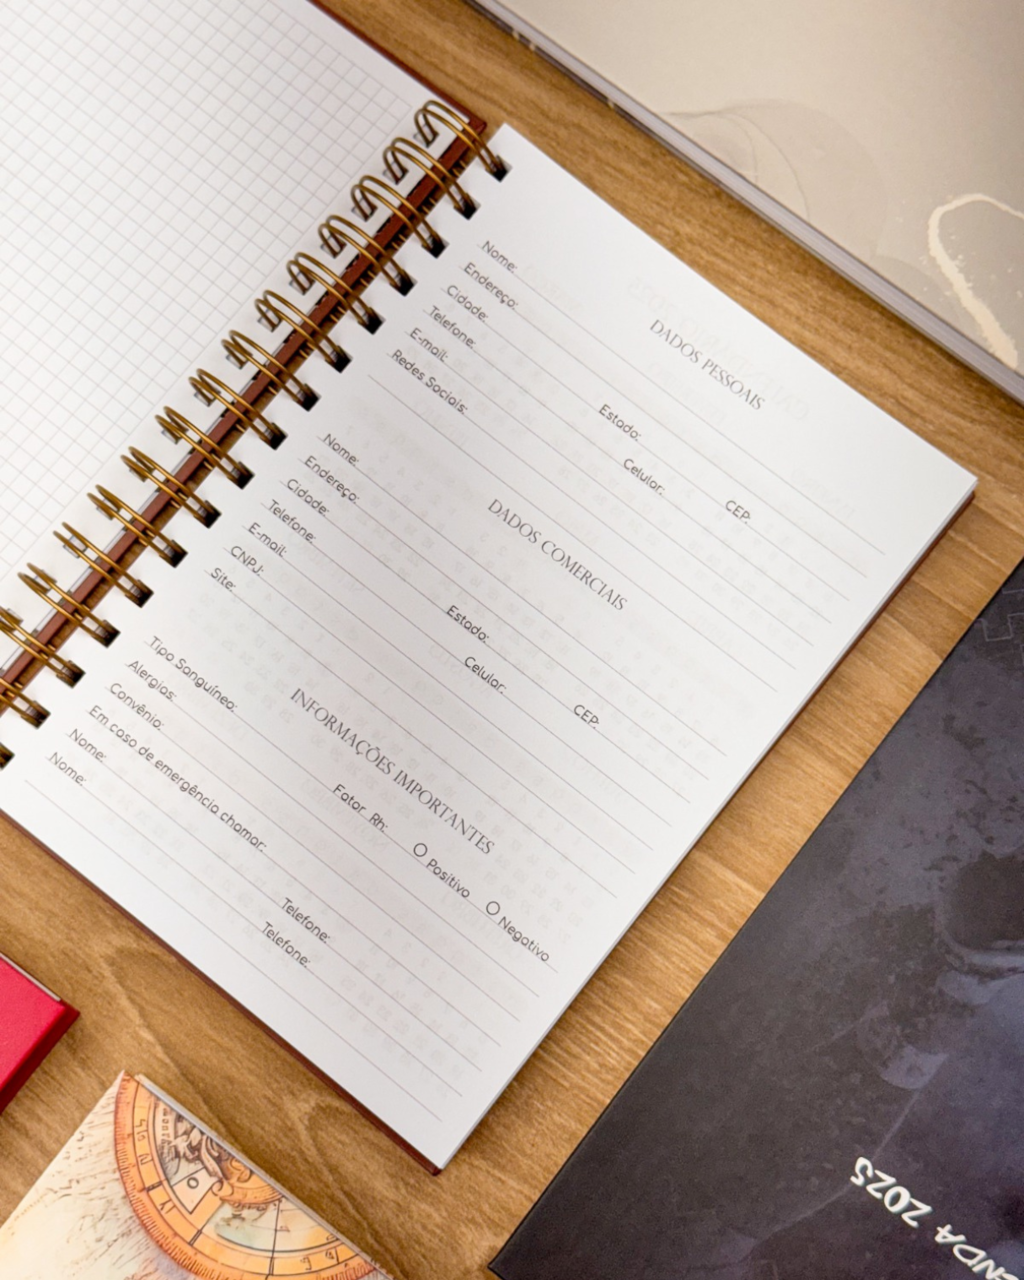 DADOS PESSOAIS
Nome:
Endereço:
Cidade: Estado: CEP:
Telefone: Celular:
E-mail:
Redes Sociais:
DADOS COMERCIAIS
Nome:
Endereço:
Cidade: Estado: CEP:
Telefone: Celular:
E-mail:
CNPJ:
Site:
INFORMAÇÕES IMPORTANTES
Tipo Sanguíneo: Fator Rh: Positivo Negativo
Alergias:
Convênio:
Em caso de emergência chamar:
Nome: Telefone:
Nome: Telefone:
NDA 2025